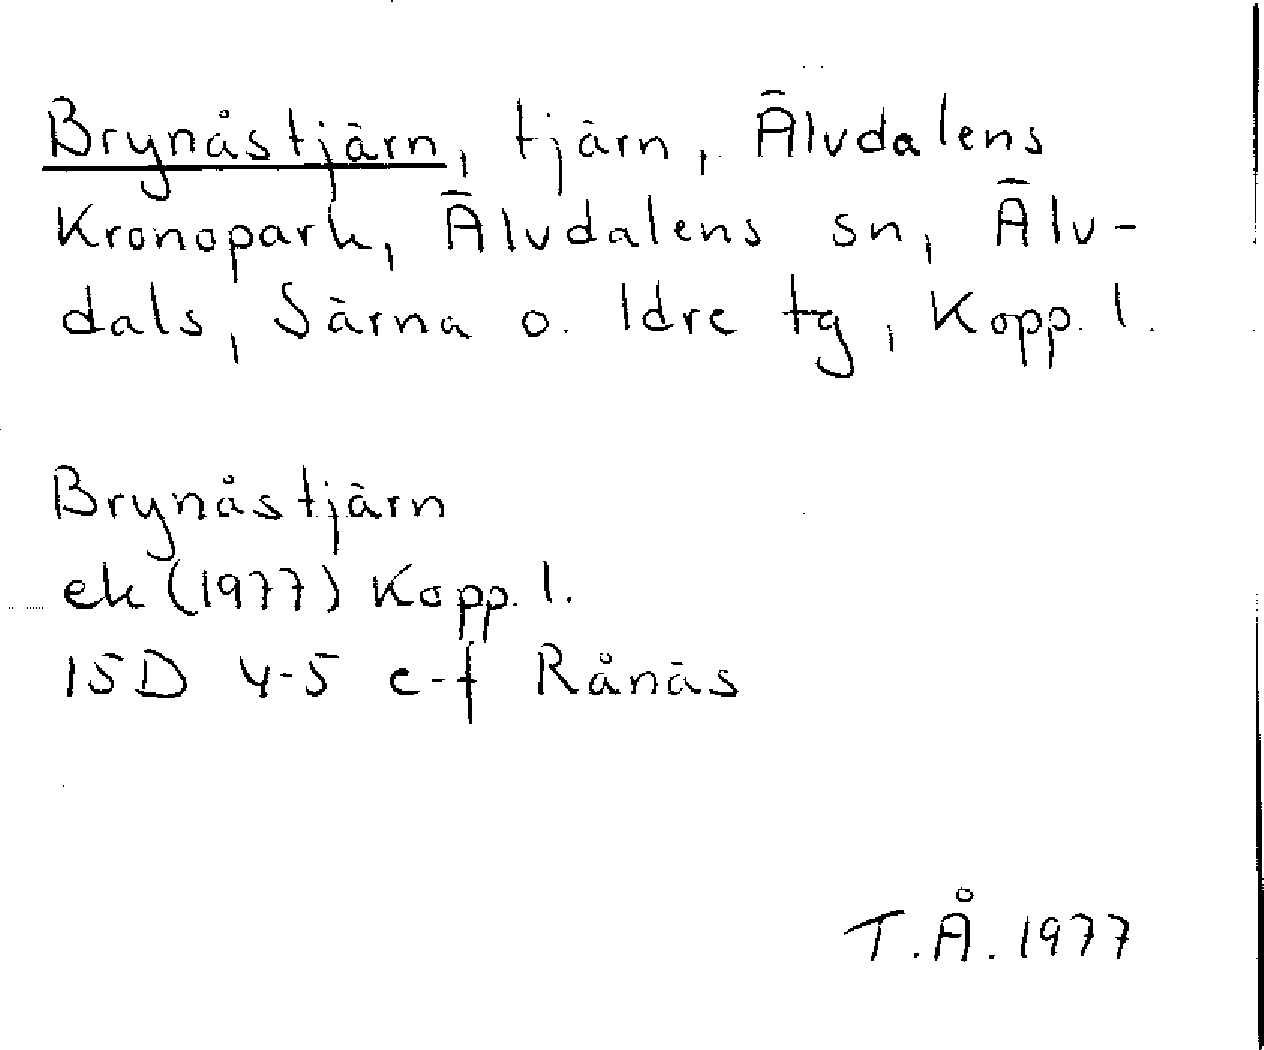 Brynåstjärn, tjärn, Älvdalens
Kronopark, Älvdalens sn, Älv-
dals, Särna o. Idre tg, Kopp. l.
Brynåstjärn
ek (1977) Kopp. l.
15D 4-5 e-f Rånäs
T.Å. 1977